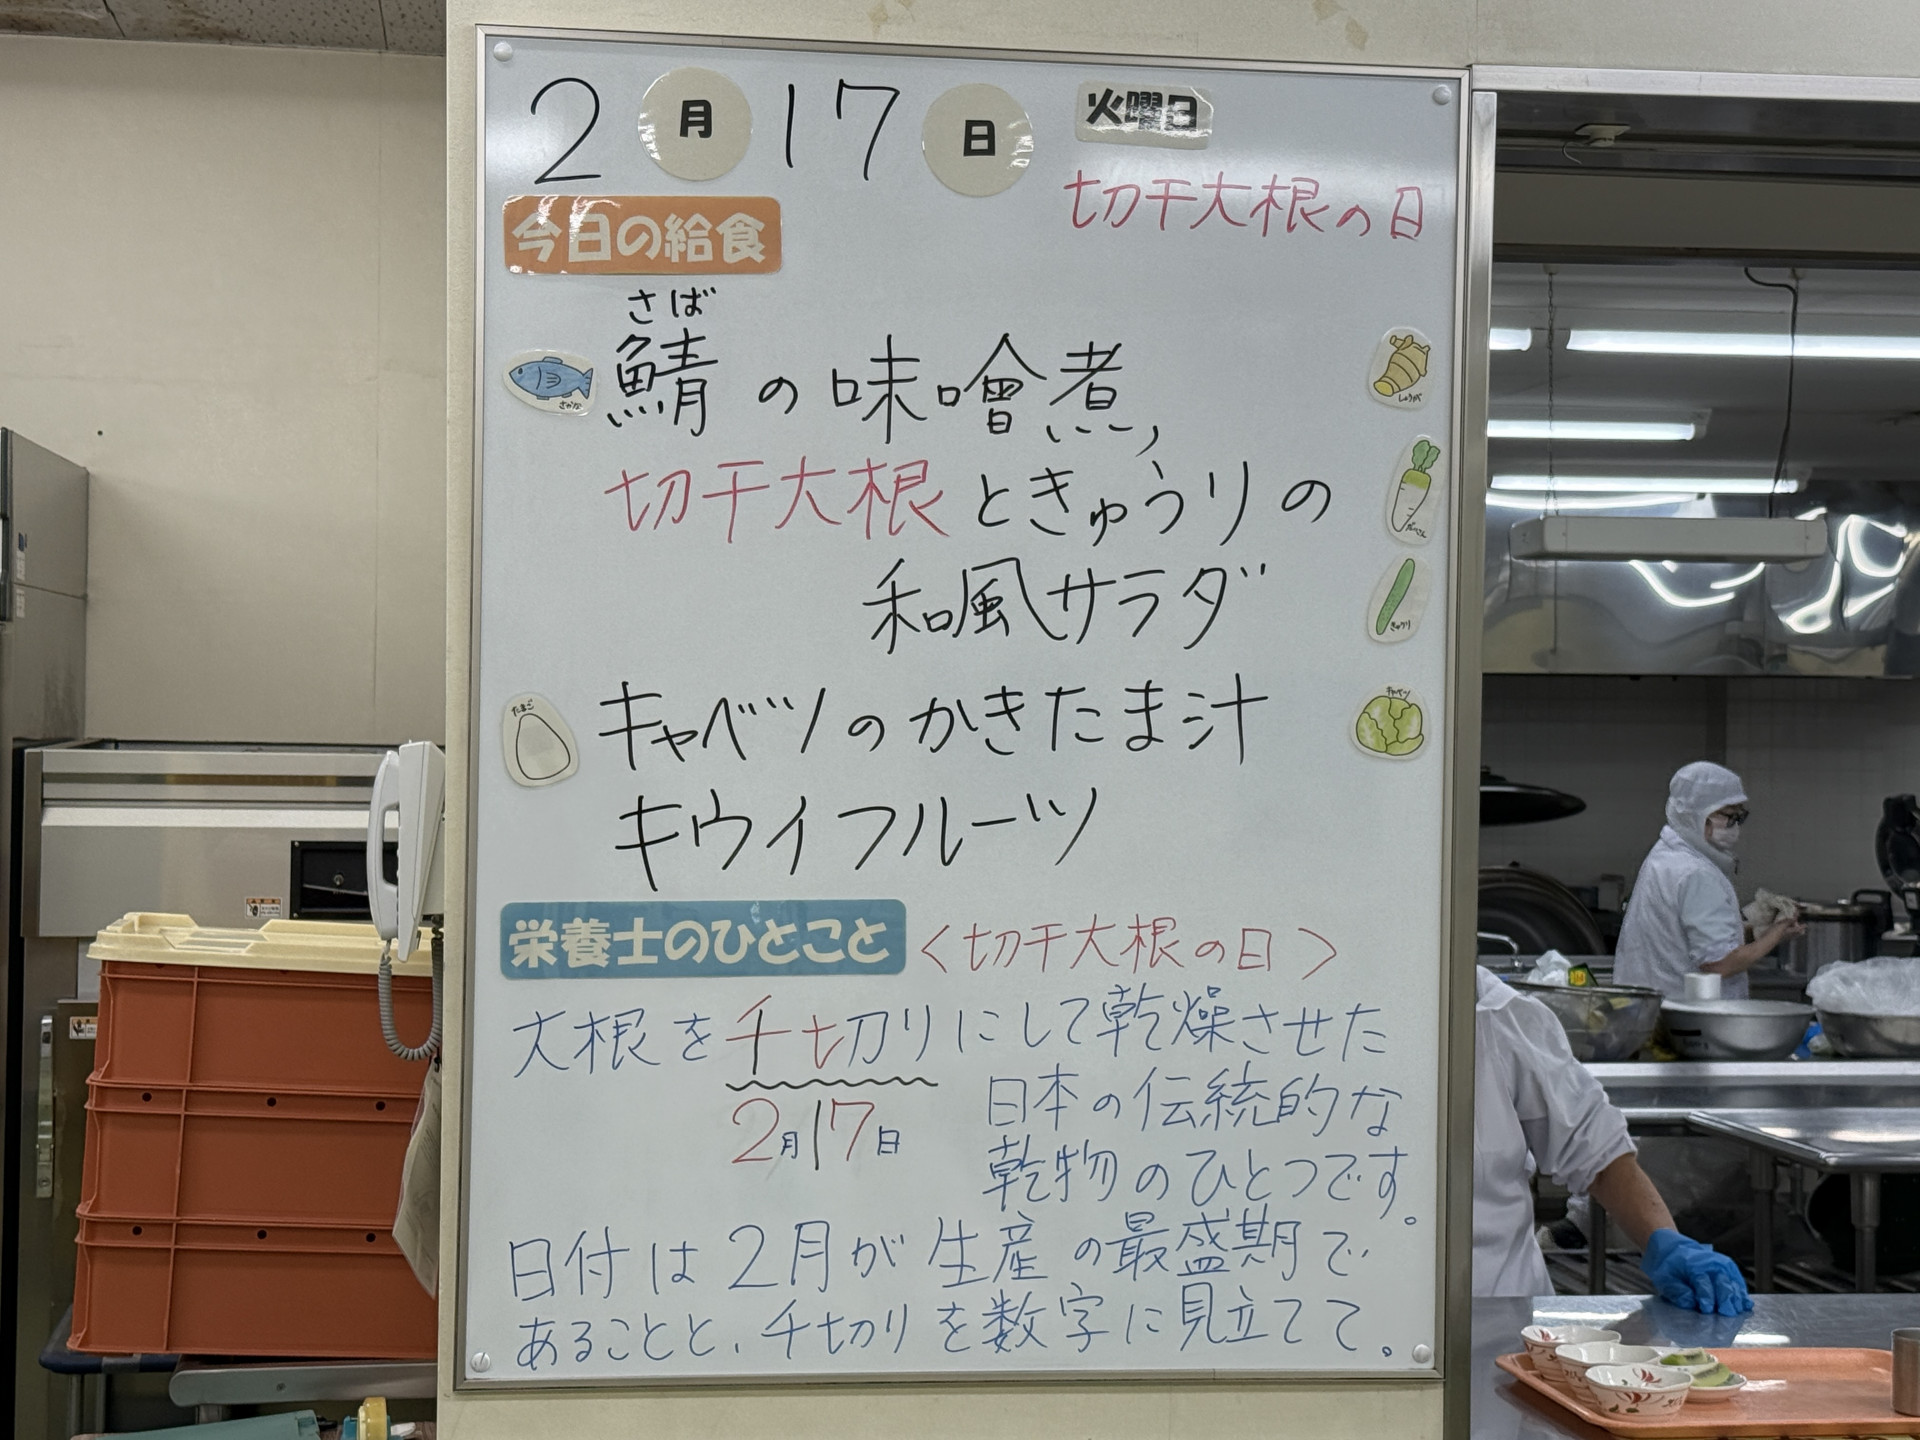 2月17日 火曜日
切干大根の日
今日の給食
さば
鯖の味噌煮,
さかな
しょうが
切干大根ときゅうりの
だいこん
和風サラダ
きゅうり
キャベツのかきたま汁
たまご
キャベツ
キウイフルーツ
栄養士のひとこと 〈切干大根の日〉
大根を千切りにして乾燥させた
2月17日
日本の伝統的な
乾物のひとつです。
日付は2月が生産の最盛期で
あることと、千切りを数字に見立てて。